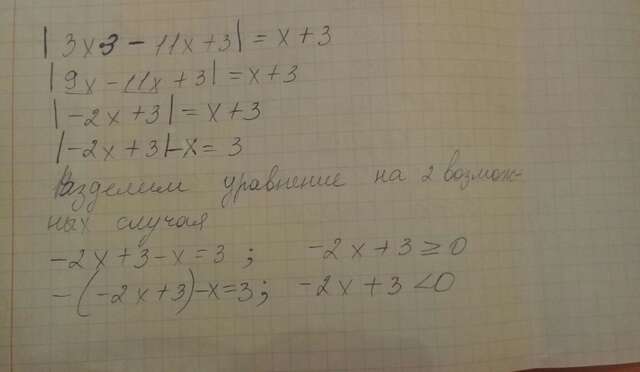 |3x·3 - 11x+3| = x+3
|9x - 11x + 3| = x+3
|-2x+3| = x+3
|-2x+3|-x = 3
Разделим уравнение на 2 возмож-
ных случая
-2x+3-x=3 ; -2x+3≥0
-(-2x+3)-x=3; -2x+3<0